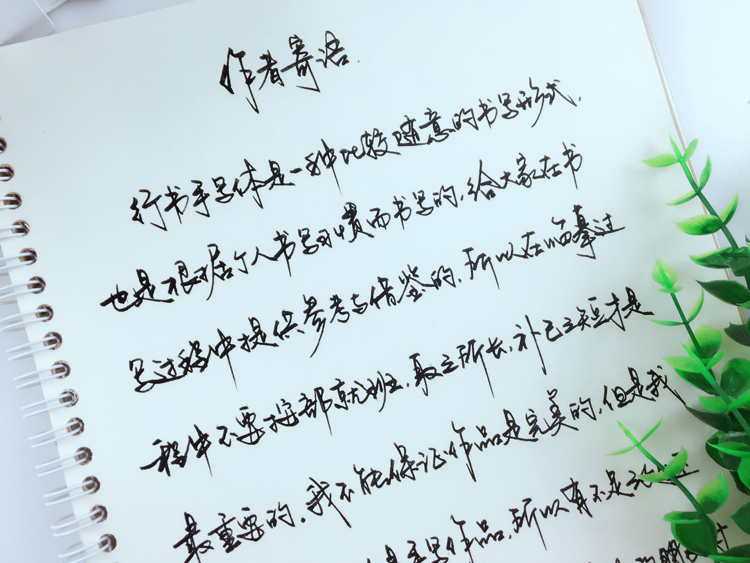 作者寄语.
行书手写体是一种比较随意的书写形式,
也是根据个人书写习惯而书写的,给大家在书
写过程中提供参考与借鉴的,所以在临摹过
程中不要按部就班,取之所长,补己之短才是
最重要的,我不能保证作品是完美的,但是我
是手写作品,所以有不足之处